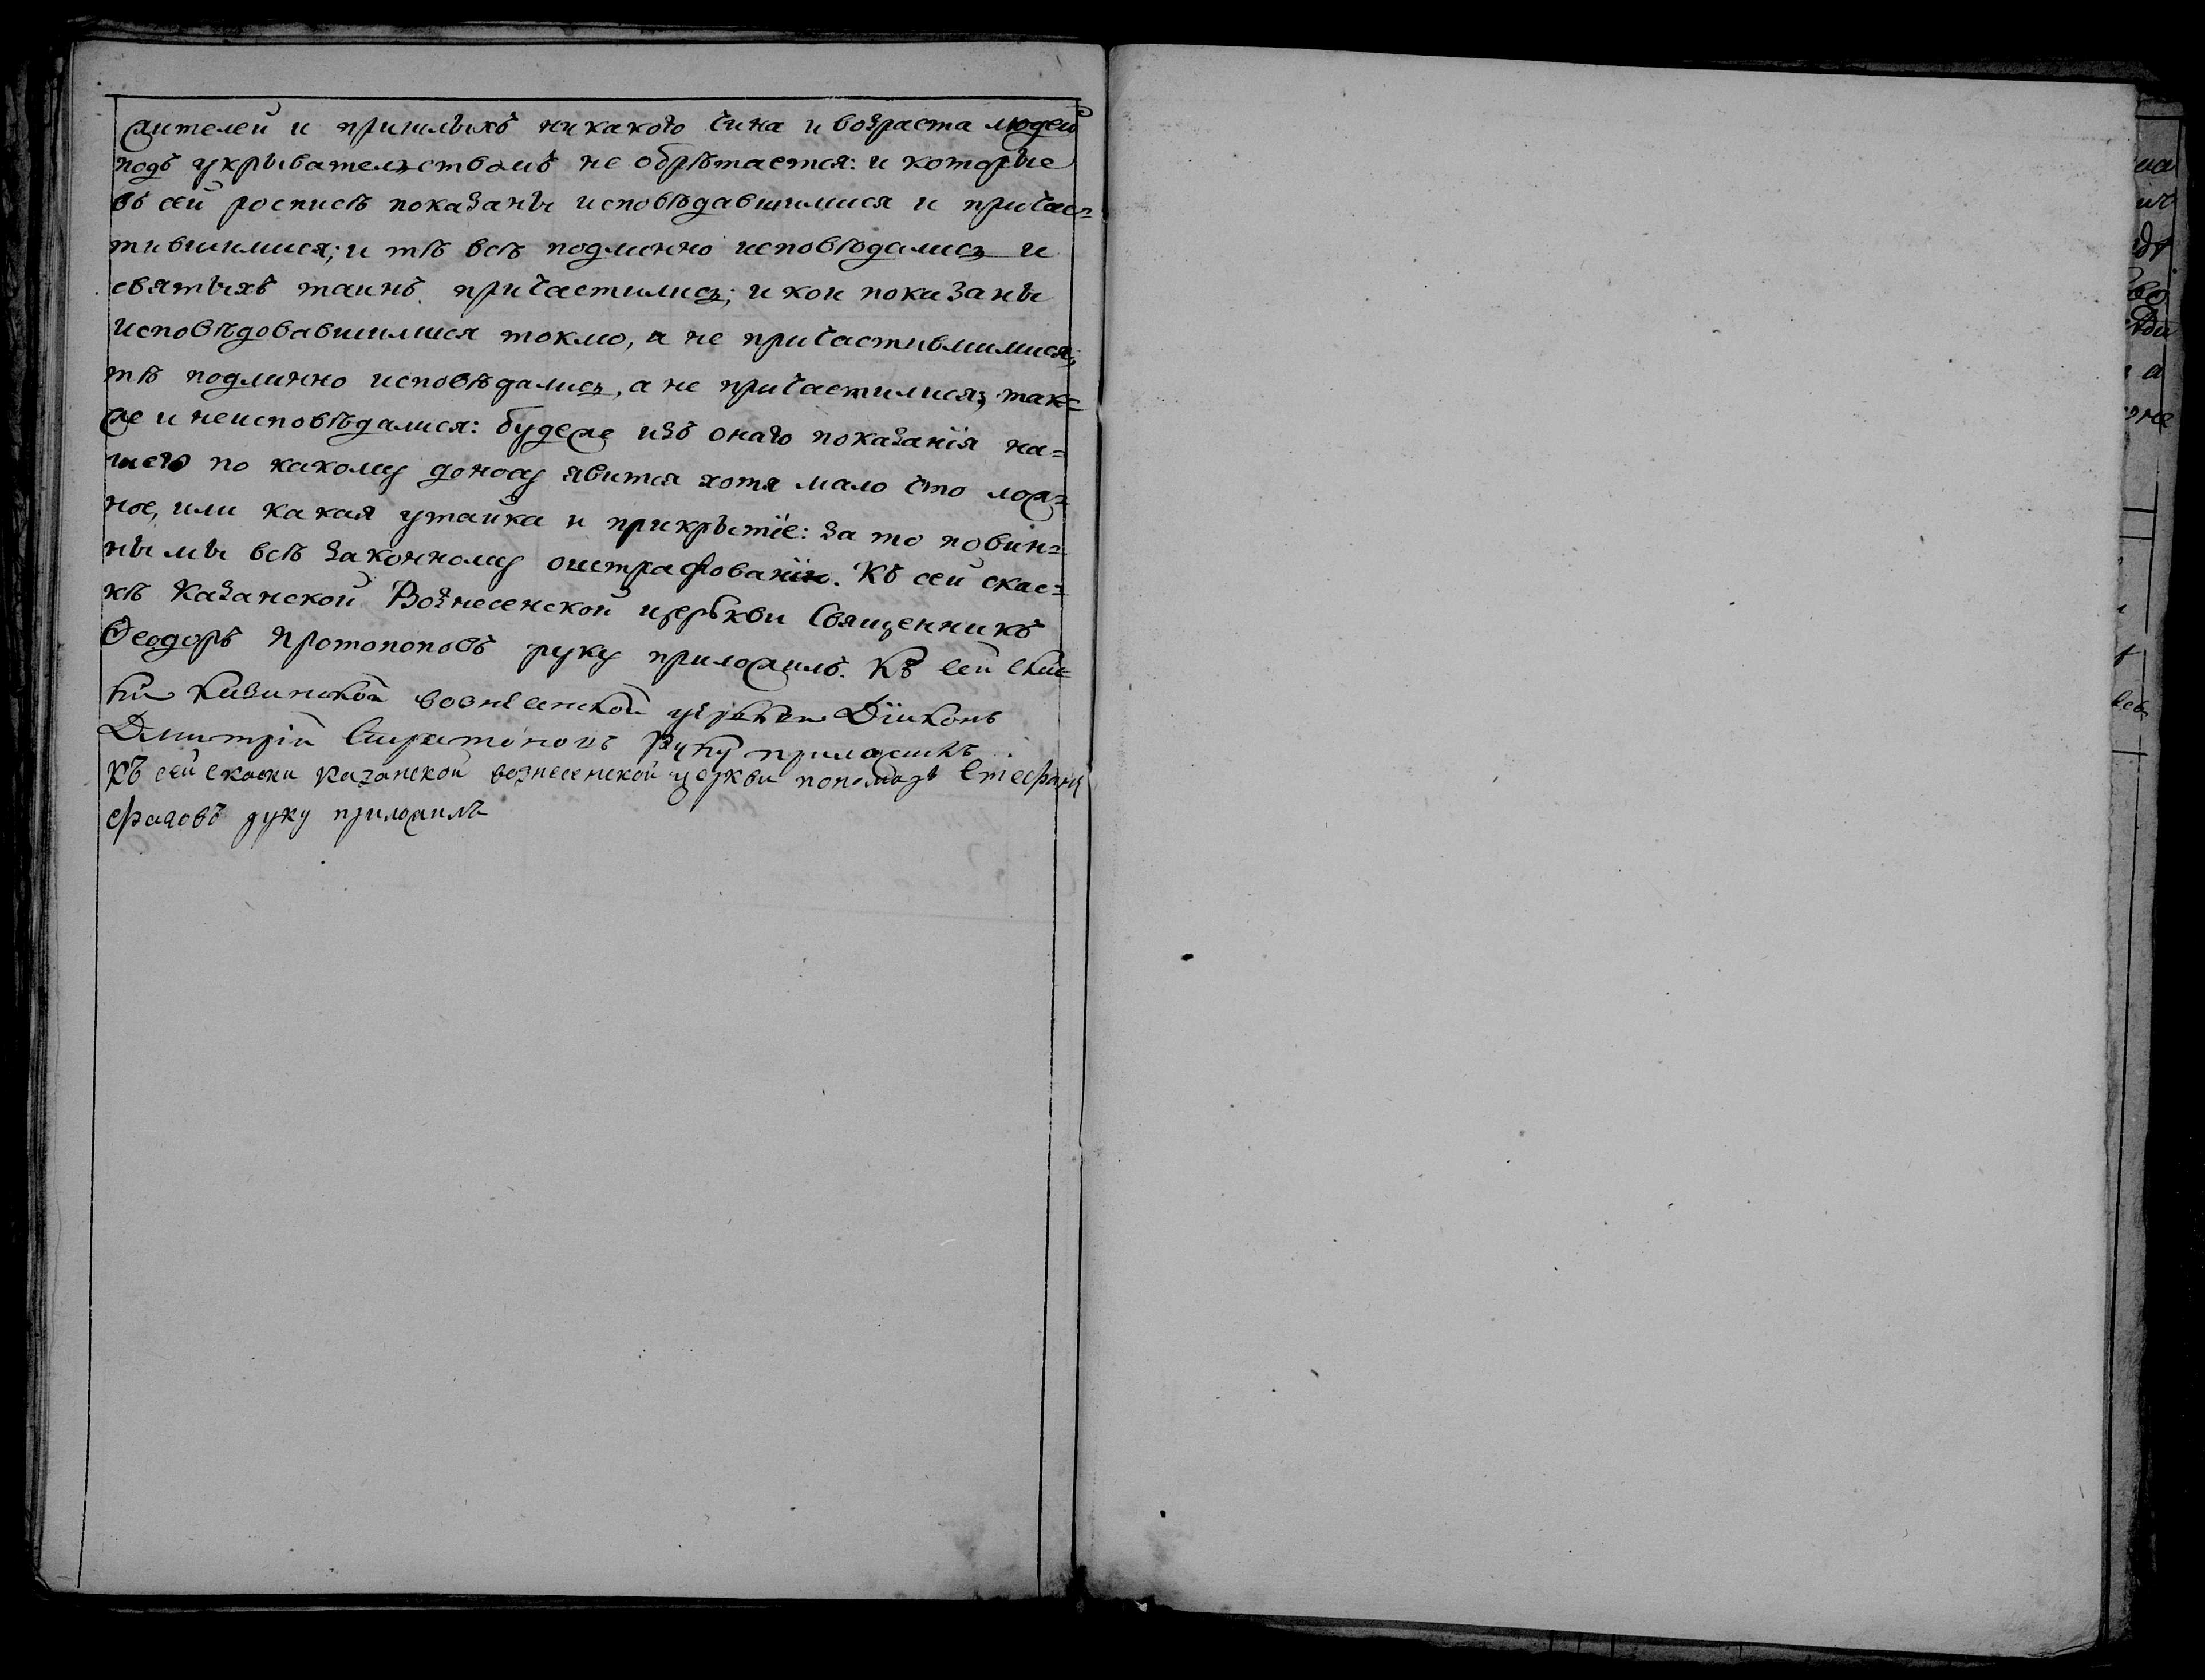 жителей и пришлыхъ никакого чина и возраста людей
подъ укрывательствомъ не обрѣтается: и которые
въ сей росписѣ показаны исповѣдавшимися и причас=
тившимися; и тѣ всѣ подлинно исповѣдались и
святыхъ таинъ причастились; и кои показаны
исповѣдовавшимися токмо, а не причастившимися;
тѣ подлинно исповѣдались, а не причастились, так=
же и неисповѣдалися: будеже изъ онаго показанїя на=
шего по какому доносу явится хотя мало что лож=
ное, или какая утайка и прикрытїе: за то повин=
ны мы всѣ законному оштрафованїю. Къ сей скас=
кѣ Казанской Вознесенской церькви Священникъ
Ѳеодоръ Протопоповъ руку приложилъ. Къ сей скас
ки казанской вознесенской церькви Дїаконъ
Димитрїй руку приложилъ.
Къ сей скаски казанской вознесенской церкви пономарь Стефанъ
руку приложилъ